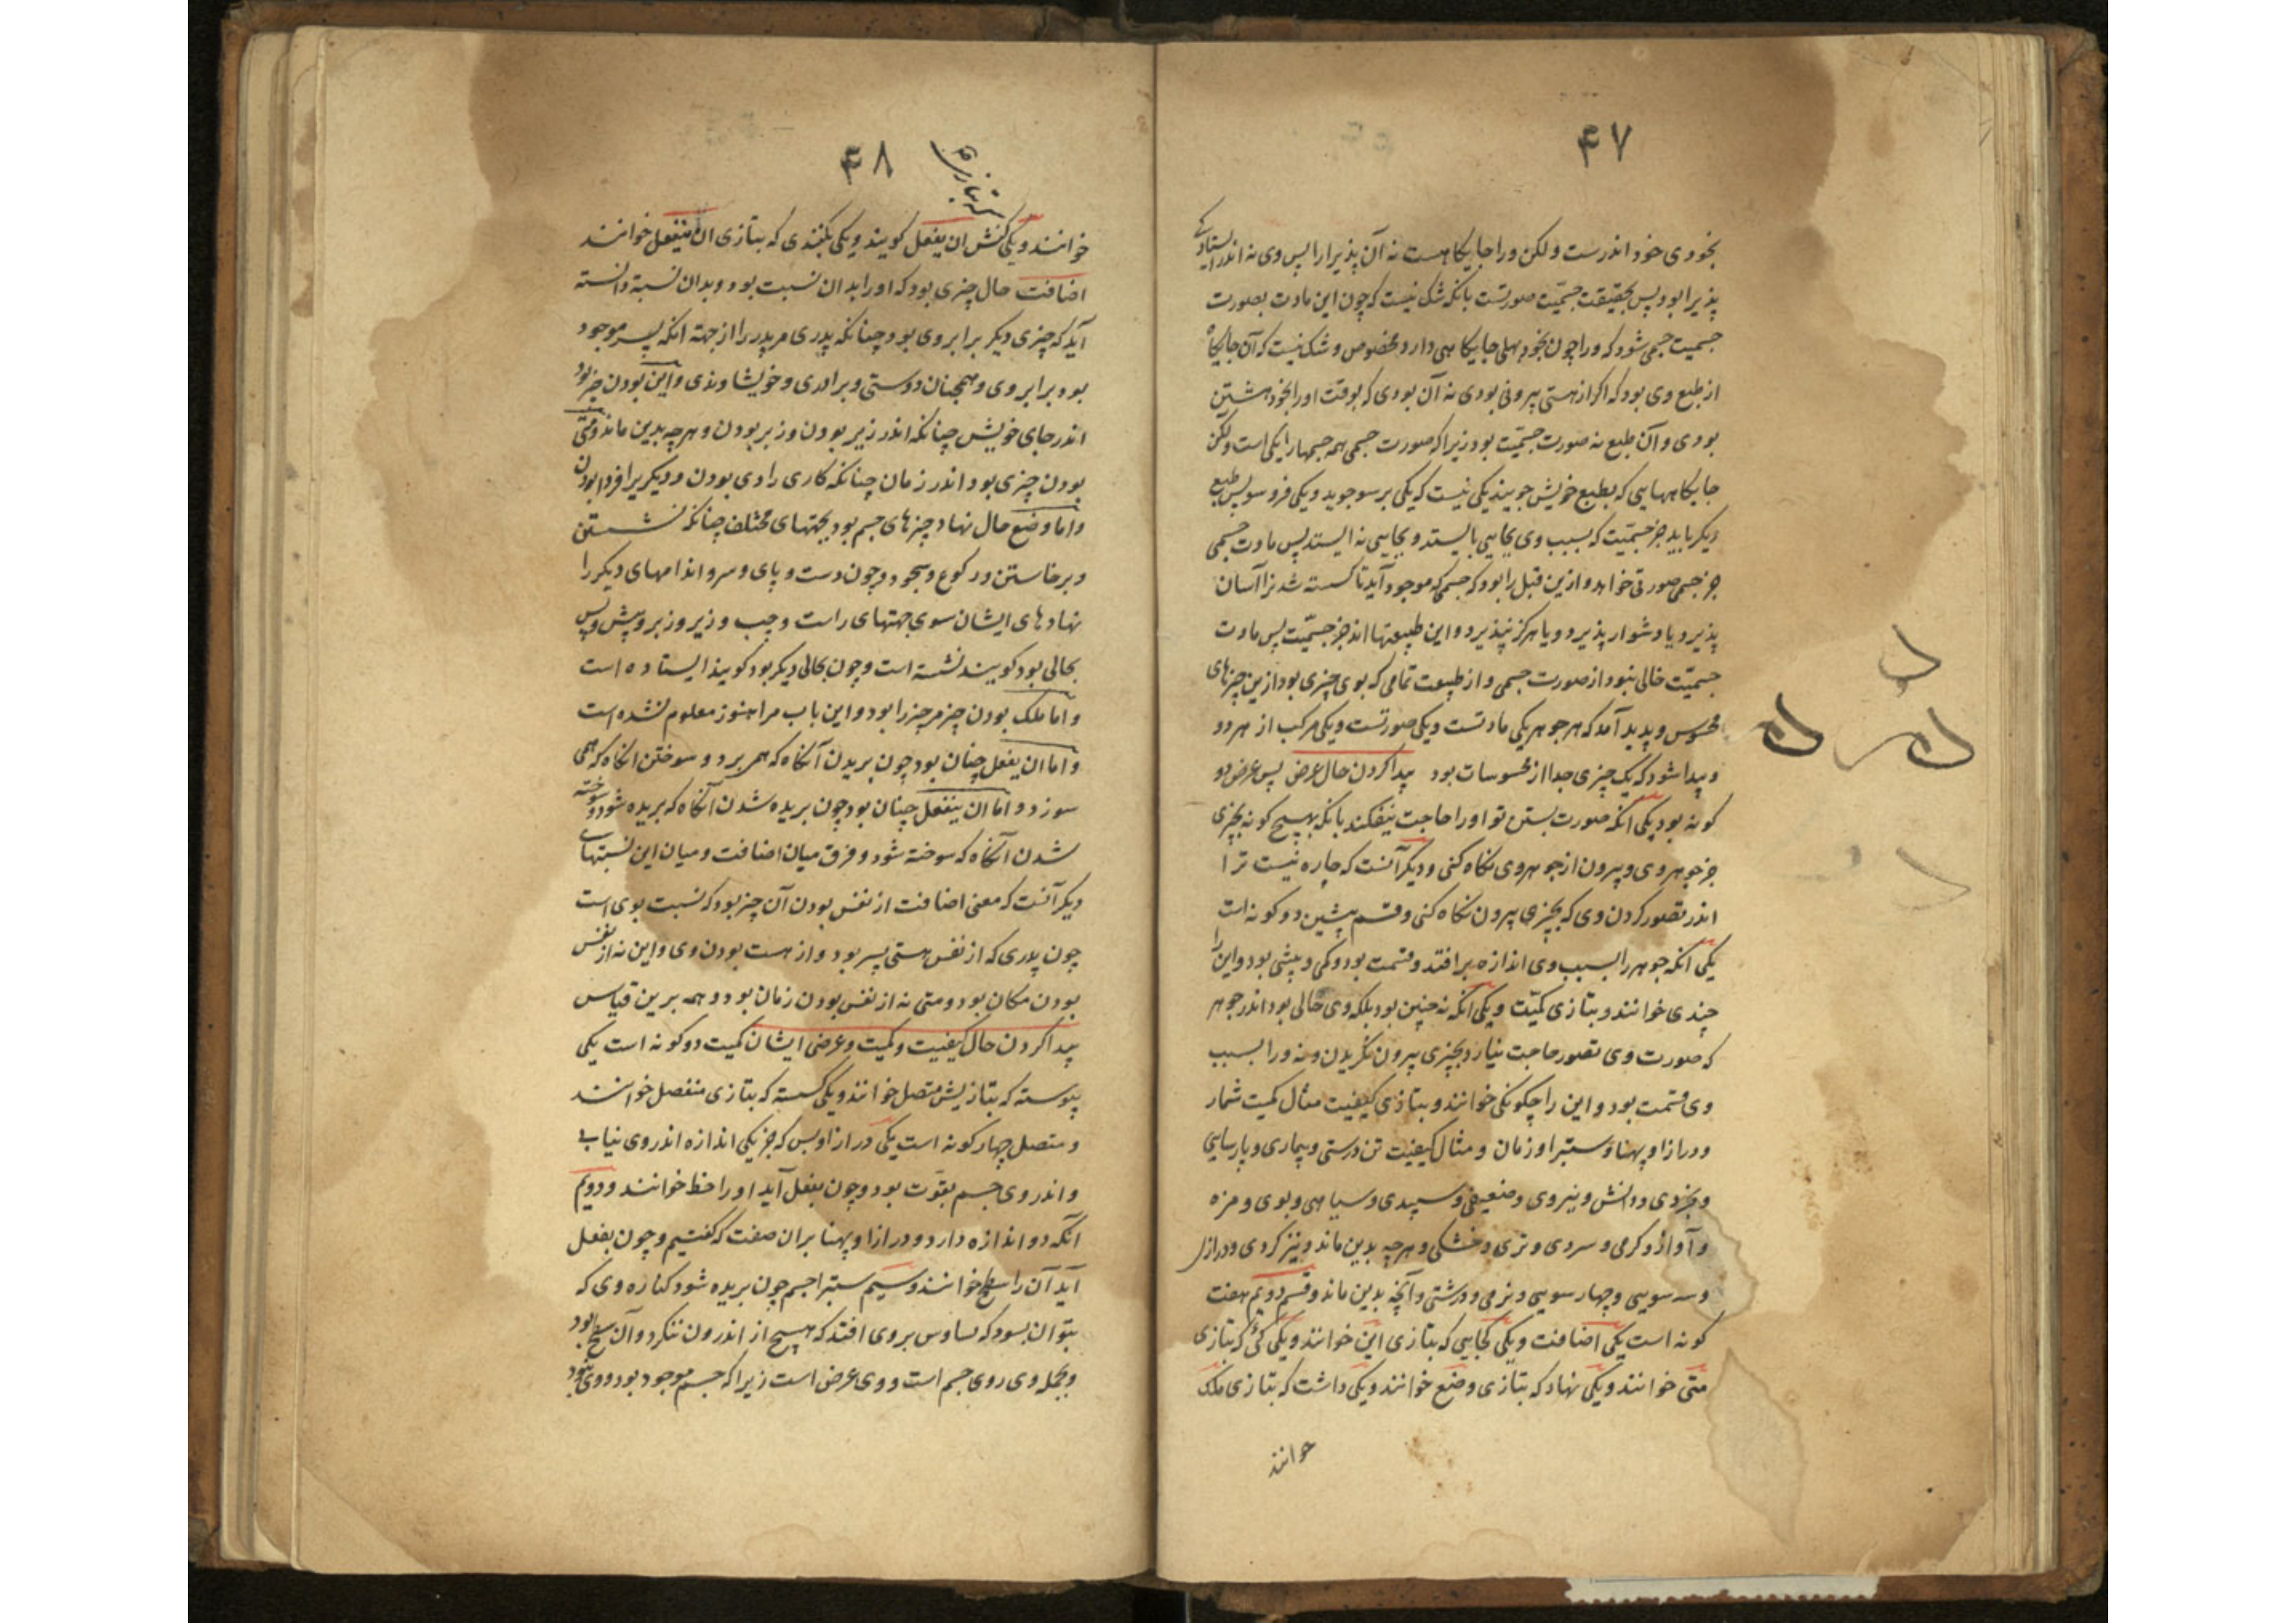 ۴۷
بخودی خود اندرست ولکن ورا جایگاهست نه آن پذیرا را پس وی نه اندر ایستادگی
پذیرا بود پس بحقیقت جسمیّت صورتست بانکه شک نیست که چون این مادت بصورت
جسمیت جسمی شود که ورا چون بخود بهلی جایگاهی دارد مخصوص و شک نیست که آن جایگاه
از طبع وی بود که اکر از هستی بیرونی بودی نه آن بودی که بوقت اورا بخود هشتن
بودی و آن طبع نه صورت جسمیّت بود زیرا که صورت جسمی همه جسمها را یکی است ولکن
جایگاههایی که بطبع خویش جویند یکی نیست که یکی بر سو جوید و یکی فرو سو پس طبع
دیکر باید جز جسمیّت که بسبب وی بجایی بایستد و بجایی نه ایستد پس مادت جسمی
جز جسمی صورتی خواهد و ازین قبل را بود که جسمی که موجود آید تا کسسته شدن را آسان
پذیرد یا دشوار پذیرد و یا هرکز نپذیرد و این طبیعتها اند جز جسمیّت پس مادت
جسمیّت خالی نبود از صورت جسمی و از طبیعت تمامی که بوی چیزی بود ازین چیزهای
محسوس و پدید آمد که هر جوهر یکی مادتست و یکی صورتست و یکی مرکب از هر دو
و پیدا شود که یک چیزی جدا از محسوسات بود پیدا کردن حال عرض پس عرض دو
کونه بود یکی انکه صورت بستن تو اورا حاجت نیفکند بانکه بهیچ کونه بچیزی
جز جوهر وی و بیرون از جوهر وی نکاه کنی و دیکر آنست که چاره نیست ترا
اندر تصور کردن وی که بچیزی بیرون نکاه کنی و قسم پیشین دو کونه است
یکی انکه جوهر را بسبب وی اندازه بر افتد و قسمت بود و کمی و بیشی بود و این را
چندی خوانند و بتازی کمیّت و یکی انکه نه چنین بود بلکه وی حالی بود اندر جوهر
که صورت وی تصور حاجت نیارد بچیزی بیرون نگریدن و نه ورا بسبب
وی قسمت بود و این را چکونکی خوانند و بتازی کیفیت مثال کمیت شمار
و درازا و پهنا و ستبرا و زمان و مثال کیفیت تن درستی و بیماری و پارسایی
و بخردی و دانش و نیروی و ضعیفی و سپیدی و سیاهی و بوی و مزه
و آواز و کرمی و سردی و تری و خشکی و هرچه بدین ماند و نیز کردی و درازی
و سه سویی و چهار سویی و نرمی و درشتی و آنچه بدین ماند و قسم دویم هفت
کونه است یکی اضافت و یکی کجایی که بتازی این خوانند و یکی کی که بتازی
متی خوانند و یکی نهاد که بتازی وضع خوانند و یکی داشت که بتازی ملک
خوانند
۴۸
خوانند و یکی کنش ان یفعل کویند و یکی بکنندی که بتازی ان ینفعل خوانند
اضافت حال چیزی بود که اورا بدان نسبت بود و بدان نسبة دانسته
آید که چیزی دیکر برابر وی بود چنانکه پدری مر پدر را از جهة انکه پسر موجود
بود برابر وی و همچنان دوستی و برادری و خویشاوندی و این بودن چیز بود
اندر جای خویش چنانکه اندر زیر بودن و زبر بودن و هرچه بدین ماند و متی
بودن چیزی بود اندر زمان چنانکه کاری را دی بودن و دیکری را فردا بودن
و اما وضع حال نهاد چیزهای جسم بود بجهتهای مختلف چنانکه نشستن
و برخاستن و رکوع و سجود و چون دست و پای و سر و اندامهای دیکر را
نهادهای ایشان سوی جهتهای راست و چپ و زیر و زبر و پیش و پس
بحالی بود کویند نشسته است و چون بحالی دیکر بود کویند ایستاده است
و اما ملک بودن چیز مر چیز را بود و این باب مرا هنوز معلوم نشده است
و اما ان یفعل چنان بود چون بریدن آنکاه که همی برد و سوختن انکاه که همی
سوزد و اما ان ینفعل چنان بود چون بریده شدن آنکاه که بریده شود و سوخته
شدن آنکاه که سوخته شود و فرق میان اضافت و میان این نسبتهای
دیکر آنست که معنی اضافت از نفس بودن آن چیز بود که نسبت بوی است
چون پدری که از نفس هستی پسر بود و از هست بودن وی و این نه از نفس
بودن مکان بود و متی نه از نفس بودن زمان بود و همه برین قیاس
پیدا کردن حال کیفیت و کمیت و عرضی ایشان کمیت دو کونه است یکی
پیوسته که بتازیش متصل خوانند و یکی کسسته که بتازی منفصل خوانند
و متصل چهار کونه است یکی درازا و بس که جز یکی اندازه اندر وی نیابی
و اندر وی جسم بقوت بود و چون بفعل آید اورا خط خوانند و دویم
آنکه دو اندازه دارد و درازا و پهنا بران صفت که کفتیم و چون بفعل
آید آن را سطح خوانند و سیم ستبرا جسم چون بریده شود کناره وی که
بتوان بسود که بساوش بر وی افتد که هیچ از اندرون ننکرد و آن سطح بود
و بجمله وی روی جسم است و وی عرض است زیرا که جسم موجود بود و وی نبود